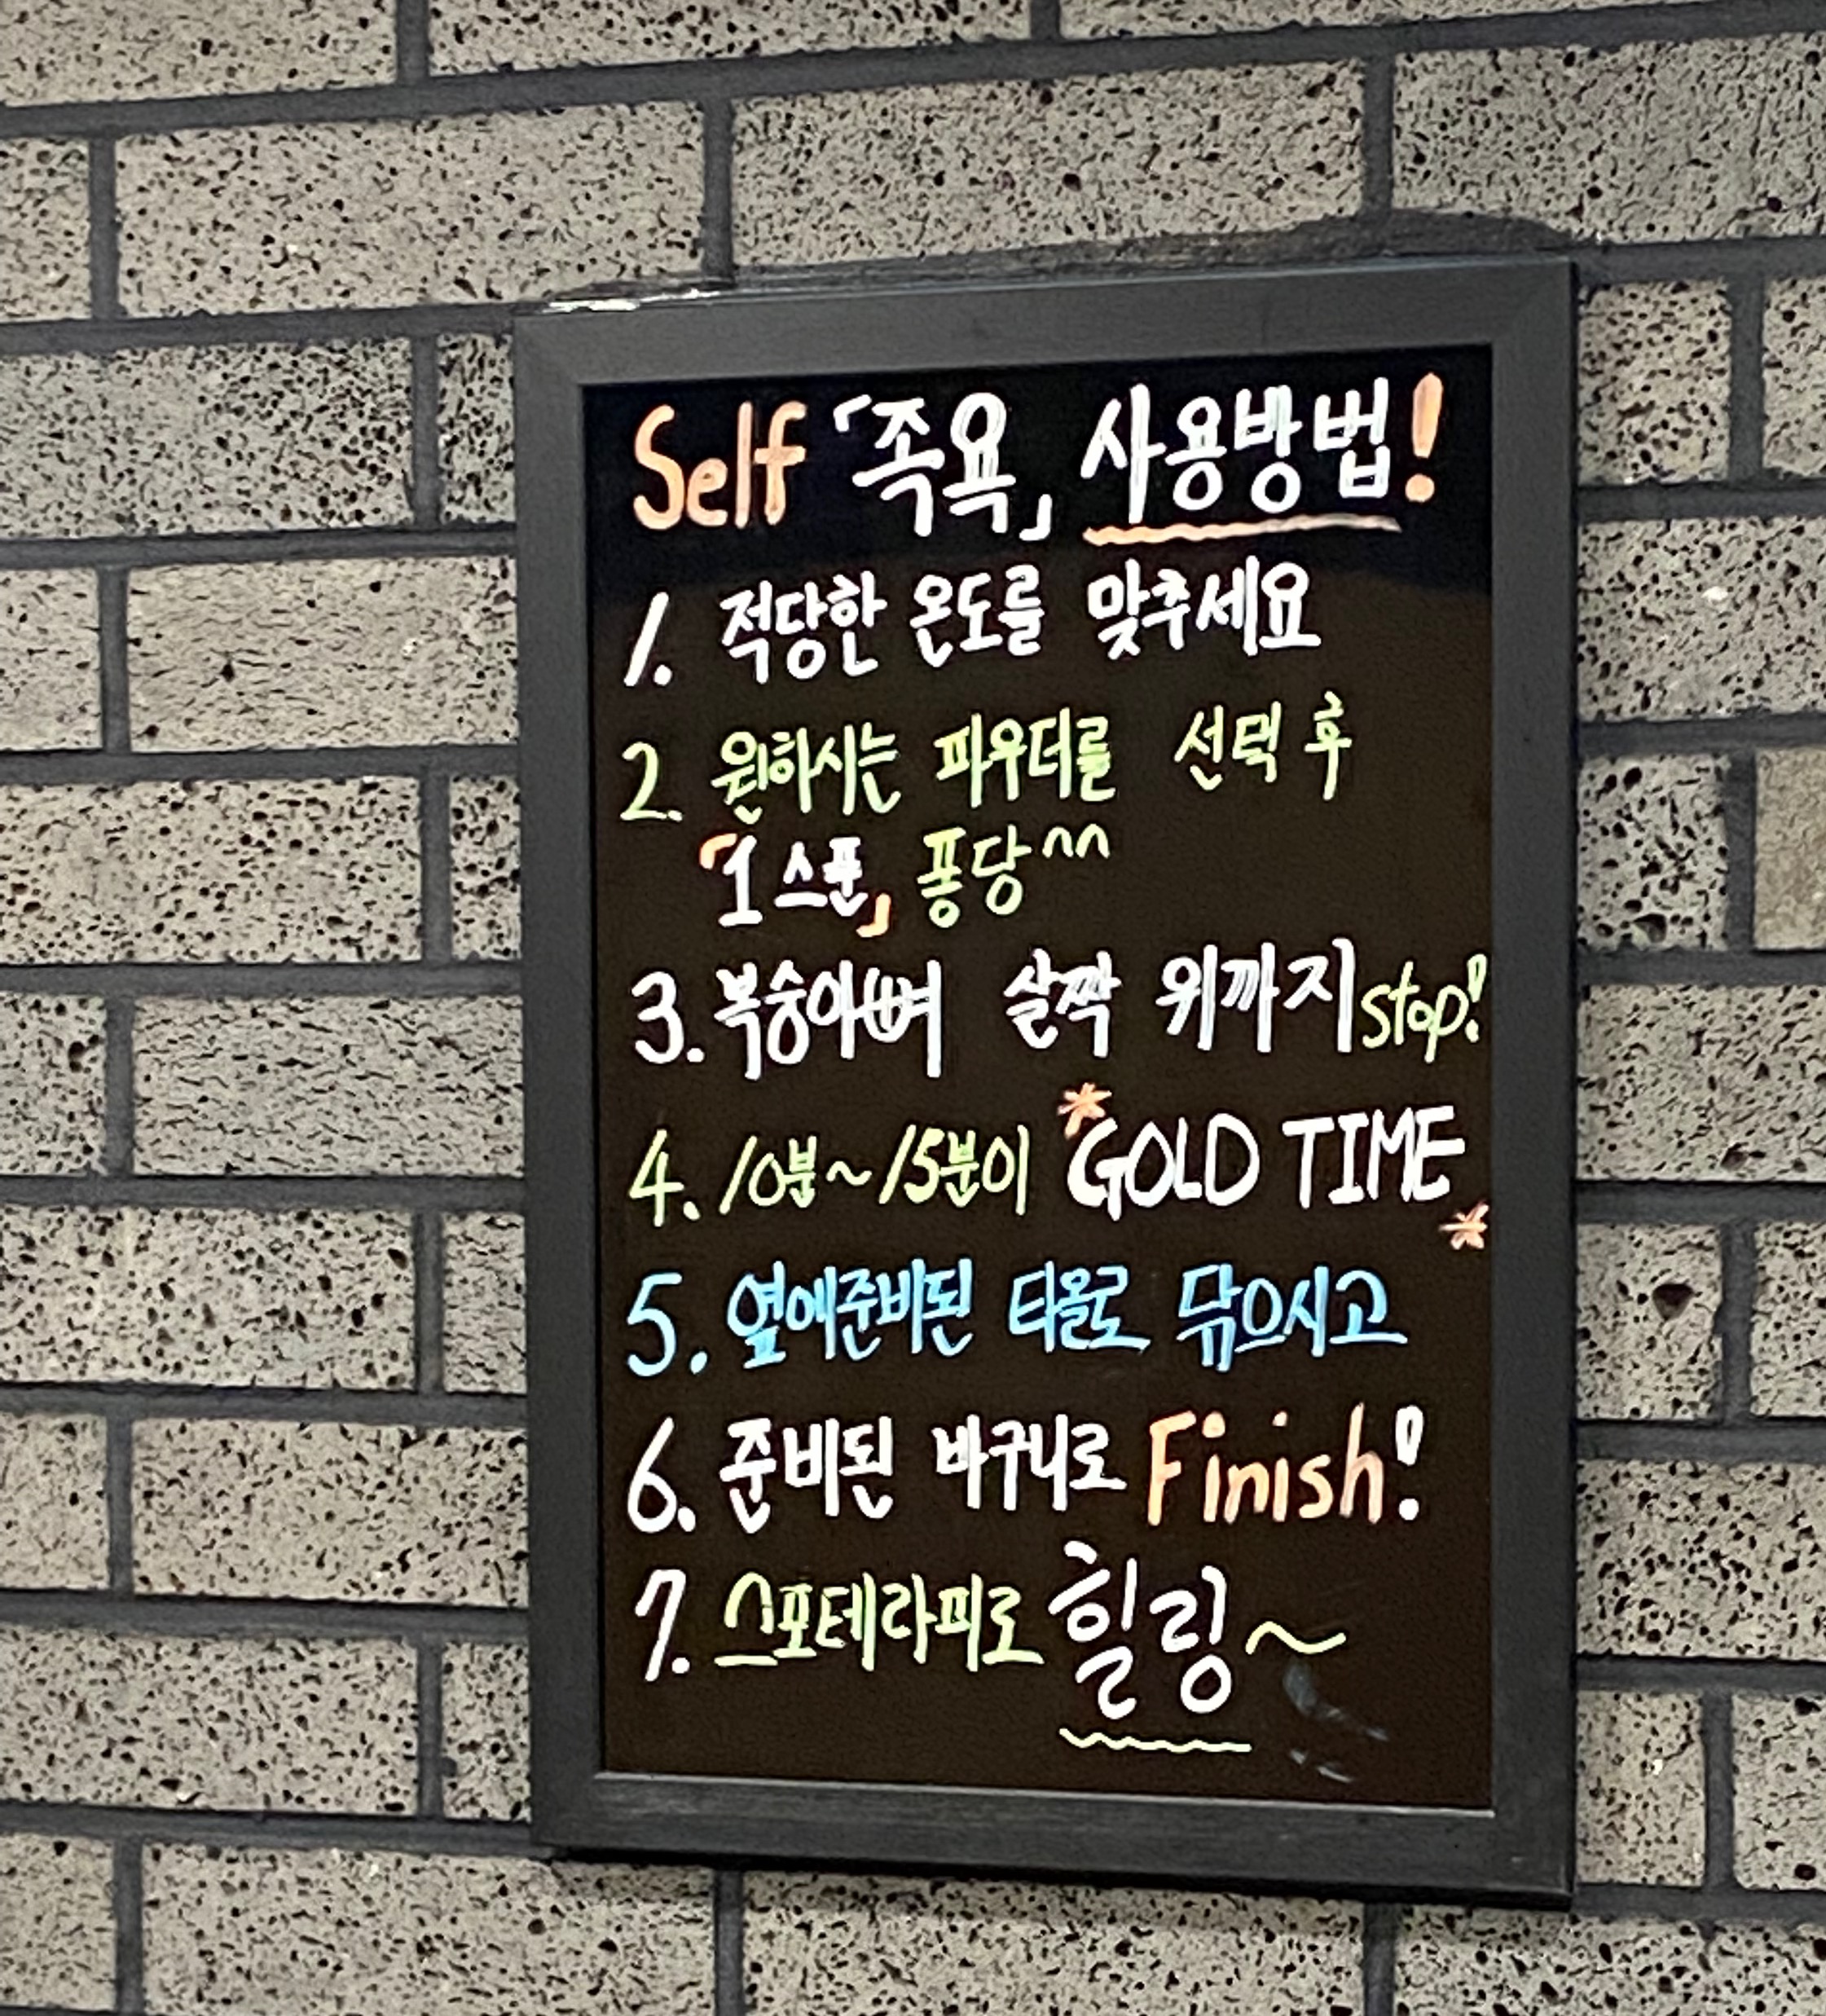 Self 「족욕」 사용방법!
1. 적당한 온도를 맞추세요
2. 원하시는 파우더를 선택 후
「1 스푼」 퐁당^^
3. 복숭아뼈 살짝 위까지 stop!
4. 10분~15분이 *GOLD TIME*
5. 옆에준비된 타올로 닦으시고
6. 준비된 바구니로 Finish!
7. 스포테라피로 힐링~